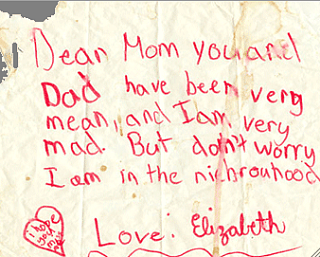 Dear Mom you and
Dad have been very
mean, and I am very
mad. But don't worry
I am in the nichrouhood
Love: Elizabeth
I hope you